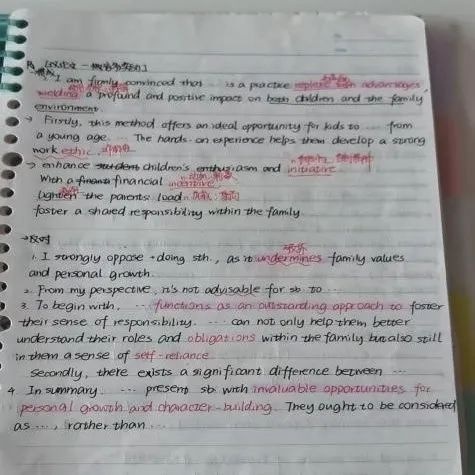 I am firmly convinced that ... is a practice replete with advantages,
wielding a profound and positive impact on both children and the family
environment.
→ Firstly, this method offers an ideal opportunity for kids to ... from
a young age. ... The hands-on experience helps them develop a strong
work ethic.
→ enhance student children's enthusiasm and initiative.
With a financial incentive
Lighten the parents' load
foster a shared responsibility within the family.
→反对
1. I strongly oppose +doing sth., as it undermines family values
and personal growth.
2. From my perspective, it's not advisable for sb to ...
3. To begin with, ... functions as an outstanding approach to foster
their sense of responsibility. ... can not only help them better
understand their roles and obligations within the family but also still
in them a sense of self-reliance.
Secondly, there exists a significant difference between ...
4. In summary ... present sb with invaluable opportunities for
personal growth and character-building. They ought to be considered
as ..., rather than ...